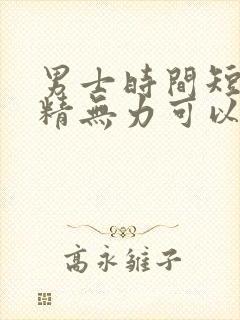 男士時間短
精無力可以
高永雛子